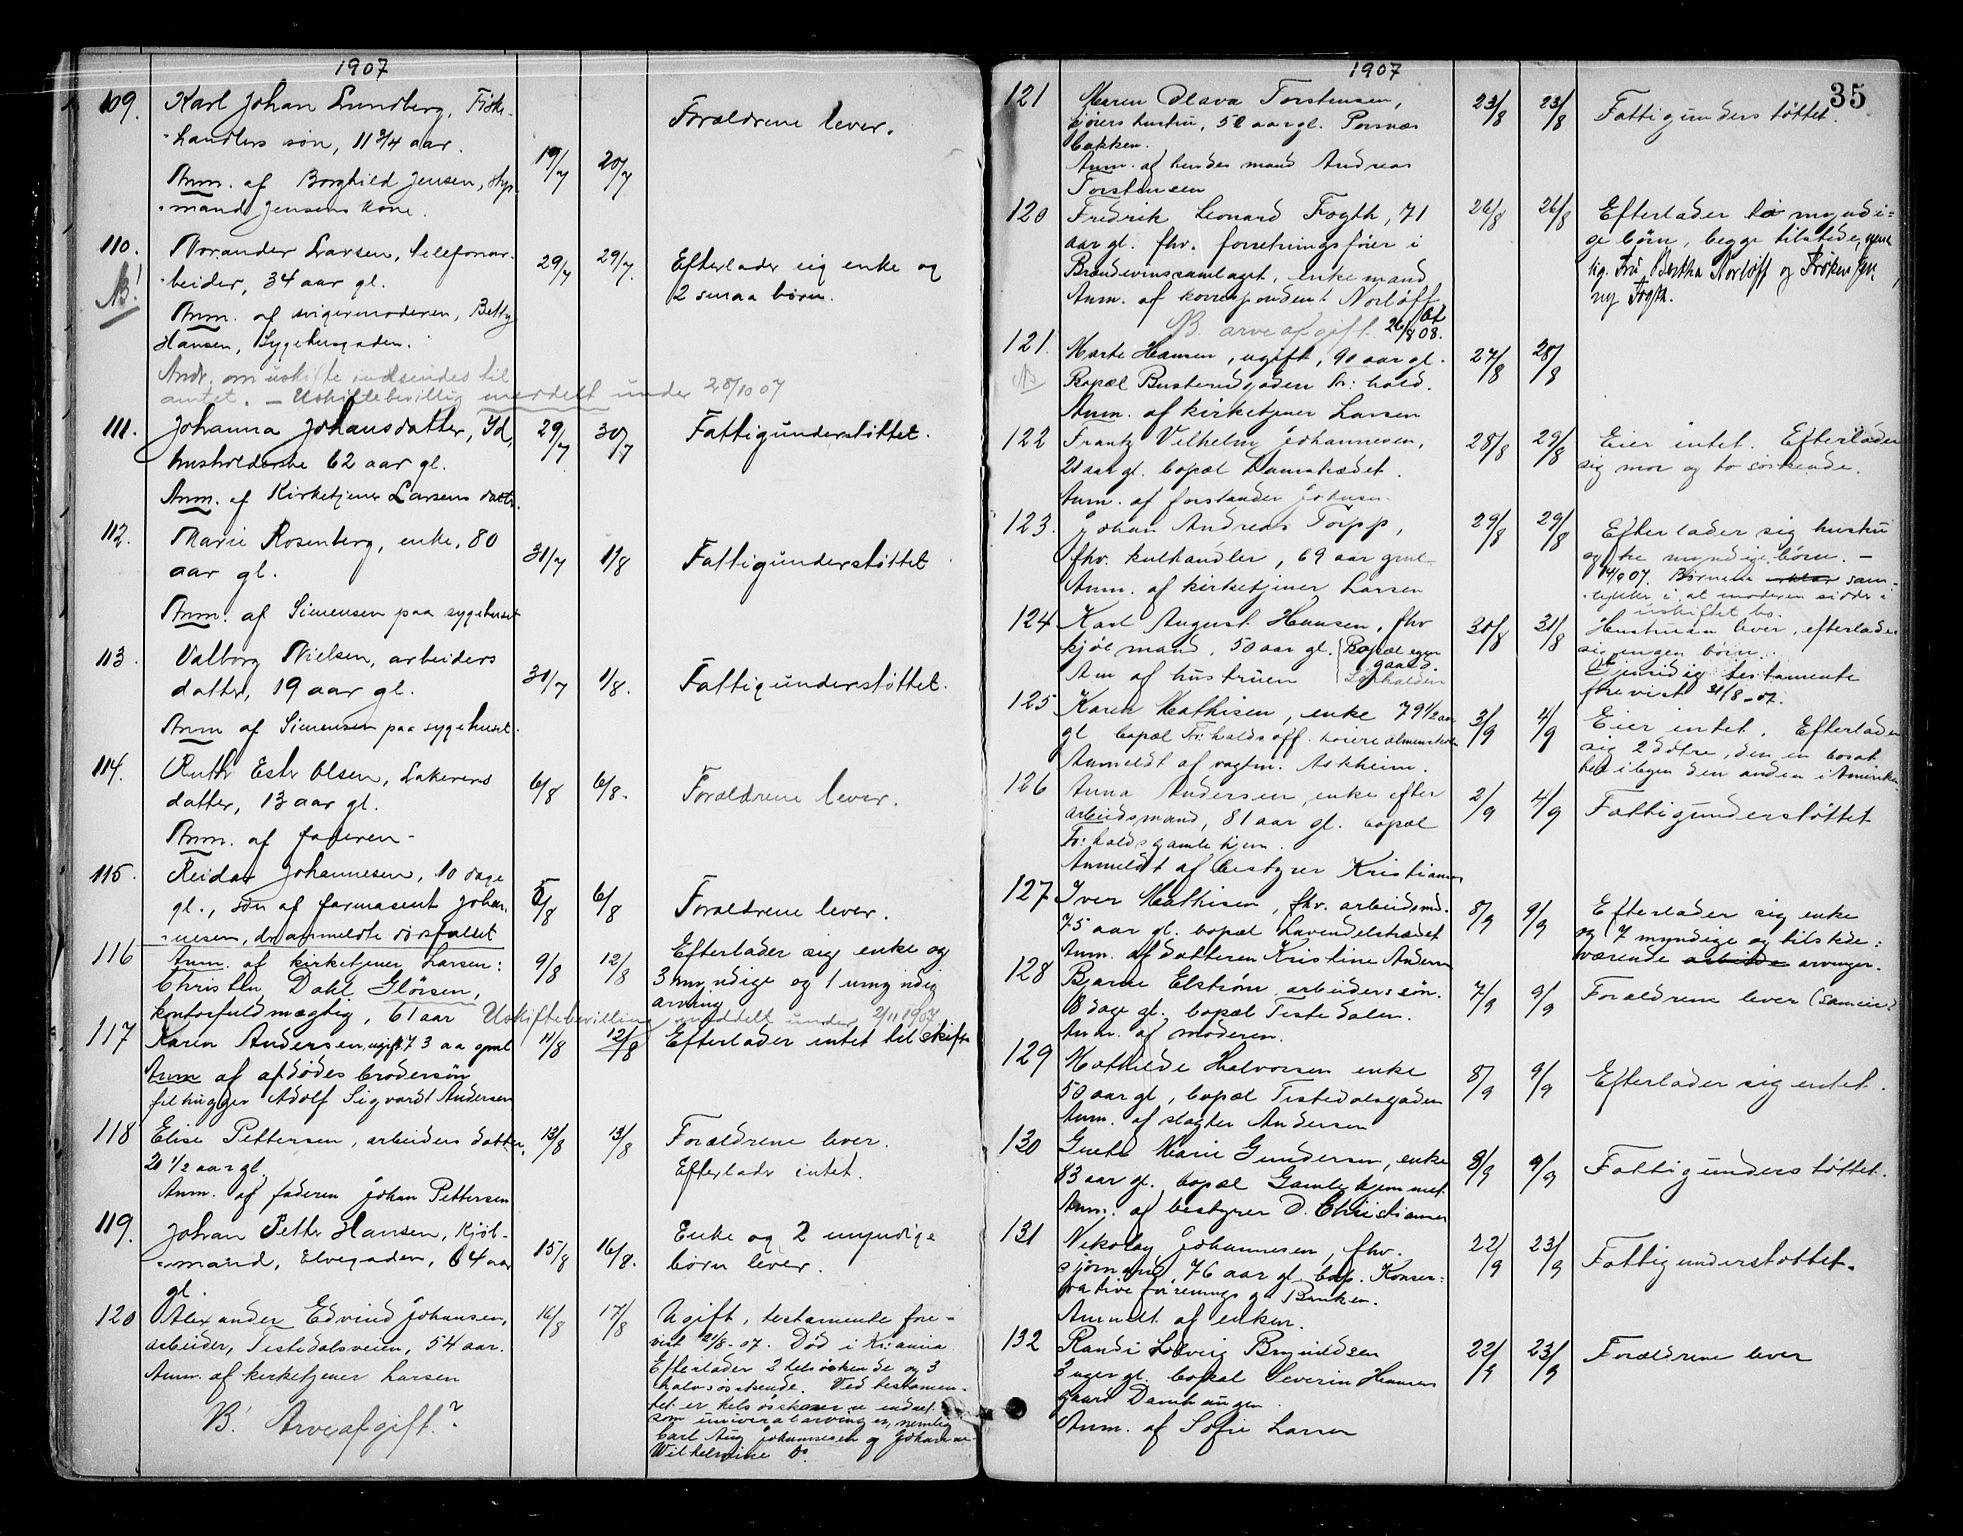 1907
109. Karl Johan Lundberg, Fiske-
handlers søn, 11 3/4 aar.
Anm. af Borghild Jensen, Styr-
mand Jensens kone.
19/7 20/7
Forældrene lever.
110. Norander Larsen, telefonar-
beider, 34 aar gl.
NB!
Anm. af svigermoderen, Betty
Hansen, Sygehusgaden.
29/7 29/7.
Efterlader sig enke og
2 smaa børn.
Andr. om uskifte indsendes til
amtet. – Uskiftebevilling meddelt under 28/10 07
111. Johanna Johansdatter, Id,
husholderske 62 aar gl.
Anm. af Kirketjener Larsens datt.
29/7 30/7
Fattigunderstøttet.
112. Marie Rosenberg, enke, 80
aar gl.
Anm. af Simensen paa sygehuset
31/7 1/8
Fattigunderstøttet
113. Valborg Nielsen, arbeiders
datter, 19 aar gl.
Anm af Simensen paa sygehuset.
31/7 1/8.
Fattigunderstøttet.
114. Ruth Ester Olsen,
datter, 13 aar gl.
Anm. af faderen –
6/8 6/8.
Forældrene lever.
115. Reidar Johannesen, 10 dage
gl., søn af farmasent Johan-
nesen, der anmeldte dødsfaldet
5/8 6/8
Forældrene lever.
116 Anm. af kirketjener Larsen:
Christen Dahl Glørsen,
kontorfuldmægtig, 61 aar
9/8 12/8
Efterlader sig enke og
3 myndige og 1 umyndig
arving
Uskiftebevilling meddelt under 2/11 1907
117 Karen Andersen, ugift, 73 aa gml
Anm af afdødes brodersøn
filhugger Adolf Sigvardt Andersen
11/8 12/8
Efterlader intet til skifte
118 Elise Pettersen, arbeiders datter,
20 1/2 aar gl.
Anm. af faderen Johan Pettersen
13/8 13/8
Forældrene lever.
Efterladr intet.
119. Johan Petter Hansen, Kjøb-
mand, Elvegaden, 64 aar
gl.
15/8 16/8.
Enke og 2 umyndige
børn lever.
120 Alexander Edvind Johansen,
arbeider, Tistedalsveien, 54 aar.
Anm. af kirketjener Larsen
NB! Arveafgift?
16/8 17/8
Ugift, testamente fore-
vist 21/8-07. Død i Kr:ania
Efterlader 2 helsøskende og 3
halvsøskende. Ved testamen-
tet er helsøskende indsat
som universalarvinger, nemlig
Carl Aug Johannesen og Johanne
Wilhelmine Do.
1907
35
121 Maren Olava Torstensen,
kjørers hustru, 52 aar gl. Porsnæs
bakken.
Anm. af hendes mand Andreas
Torstensen
23/8 23/8
Fattigunderstøttet.
120 Fredrik Leonard Fogth, 71
aar gl. fhv. forretningsfører i
Brændevinssamlaget, enkemand
Anm. af korrespondent Norløff
NB. arveafgift 26/8 08.
26/8 26/8
Efterlader to myndi-
ge børn, begge tilstede, nem-
lig Fru Bertha Norløff og Frøken
Fogth.
121. Marte Hansen, ugift, 90 aar gl.
NB
Bopæl Busterudgaden Fr: hald.
Anm. af kirketjener Larsen
27/8 28/8
122 Frantz Vilhelm Johannesen,
21 aar gl. bopæl Damstrædet.
Anm. af forstander Johnsen
28/8 29/8
Eier intet. Efterlader
sig mor og to søskende.
123. Johan Andreas Torpp,
fhv. kulhandler, 69 aar gml
Anm. af kirketjener Larsen
29/8 29/8
Efterlader sig hustru
og tre myndige børn. –
14/9 07. Børnene sam-
tykker i, at moderen sidder i
uskiftet bo.
124 Karl August Hansen, fhv
kjøbmand, 50 aar gl. Bopæl egen
gaard.
Am af hustruen
30/8 31/8
Hustruen lever, efterlader
sig ingen børn.
Gjensidig testamente
forevist 31/8-07.
125 Karen Mathisen, enke 79 1/2 aar
gl bopæl Fr: halds off. høiere almenskole
Anmeldt af vagtm. Askheim.
3/9 4/9
Eier intet. Efterlader
sig 2 døtre, den en bosat
her i byen den anden i Amerika
126 Anna Andersen, enke efter
arbeidsmand, 81 aar gl. bopæl
Fr: halds gamle hjem.
Anmeldt af bestyrer Kristiansen
2/9 4/9
Fattigunderstøttet
127 Iver Mathisen, fhv. arbeidsmd.
75 aar gl. bopæl Lavendelstrædet
Anm. af datteren Kristine Andersen
8/9 9/9
Efterlader sig enke
og 7 myndige og tilstede-
værende arvinger.
128 Bjarne Elstrøm arbeiders søn.
18 dage gl. bopæl Tistedalen.
Anm. af moderen.
7/9 9/9
Forældrene lever
129 Mathilde Halvorsen enke
50 aar gl, bopæl Tistedalsgaden
Anm. af slagter Andersen
8/9 9/9
Efterlader sig intet.
130 Grete Marie Gundersen, enke
83 aar gl. bopæl Gamlehjemmet.
Anm. af bestyrer D. Christiansen
8/9 9/9
Fattigunderstøttet.
131 Nikolay Johannesen, fhv.
sjømand, 76 aar gl. bop. Konser-
vative forenings gd Banken.
Anmeldt af enken.
22/9 23/9
Fattigunderstøttet.
132 Randi Lovvig Brynildsen
3 uger gl. bopæl Severin Hansens
gaard Damhaugen.
Anm. af Sofie Larsen
22/9 23/9
Forældrene lever